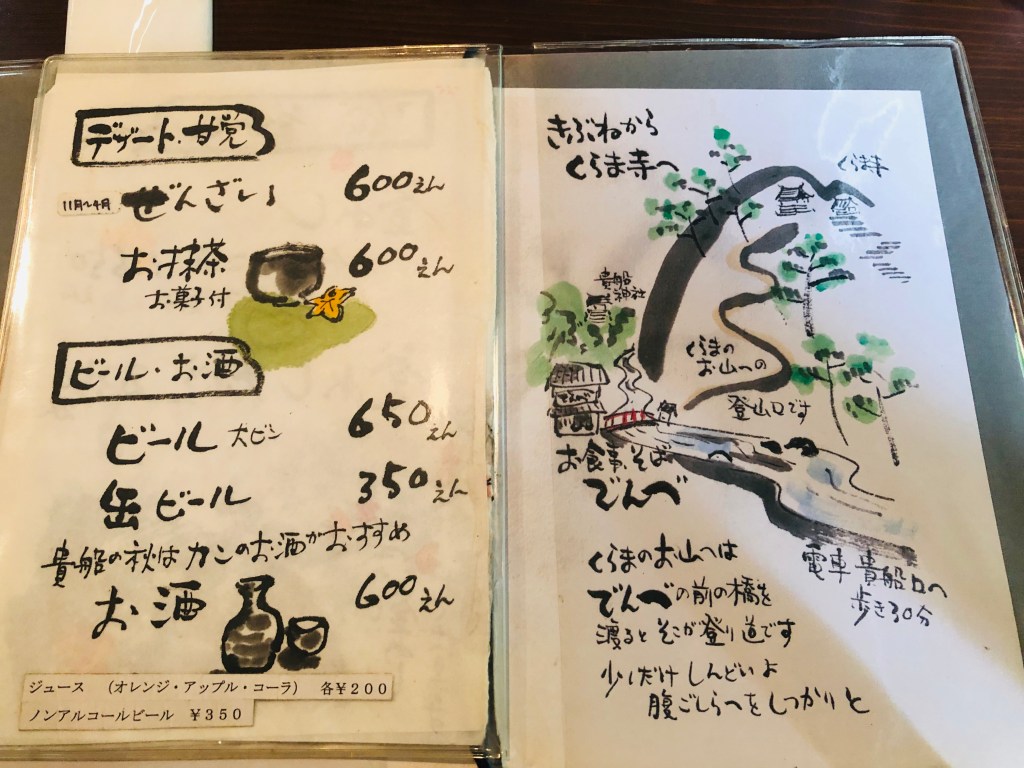 デザート・甘党
11月〜4月 ぜんざい 600えん
お抹茶 600えん
お菓子付
ビール・お酒
ビール 大ビン 650えん
缶ビール 350えん
貴船の秋はカンのお酒がおすすめ
お酒 600えん
ジュース （オレンジ・アップル・コーラ） 各￥200
ノンアルコールビール ￥350
きぶねから
くらま寺へ
くらま寺
貴船
神社
くらまの
お山への
登山口です
お食事・そば
でんべ
電車 貴船口へ
歩き30分
くらまのお山へは
でんべの前の橋を
渡るとそこが登り道です
少しだけしんどいよ
腹ごしらへをしつかりと